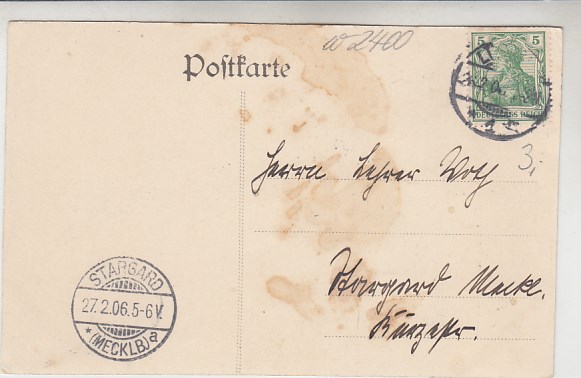 w 2400
Postkarte
5 5
DEUTSCHES REICH
3,-
Herrn Lehrer Voth
Stargard Meckl.
Kurzestr.
STARGARD
27.2.06.5-6V.
* (MECKLB) a